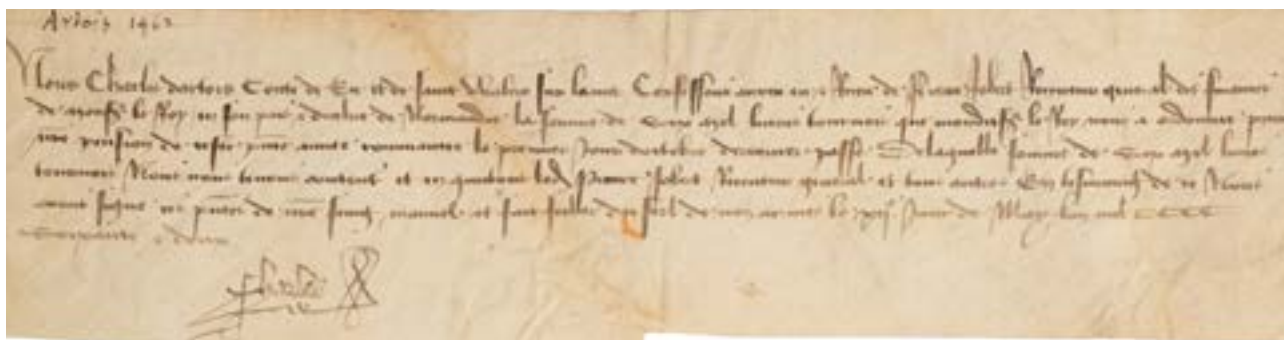 Artois 1462
Nous Charles dartois Conte de Eu et de Saint Walery sur lamer Confessons avoir eu et Receu de Pierre Jobert Receveur general des finances
de monsr le Roy en son pais et duchie de Normandie la somme de mil livres tournois que mondit sr le Roy nous a ordonnee pour
pension de ceste annee commancee le premier Jour doctobre derrenier passe De laquelle somme de mil livres
tournois Nous nous tenons content et en quictons led Pierre Jobert Receveur general et tous autres En tesmoing de ce Nous
avons signe ces de main et fait seeller du seel de noz armes le Jour de May lan mil CCCC
soixante et deux
Charles